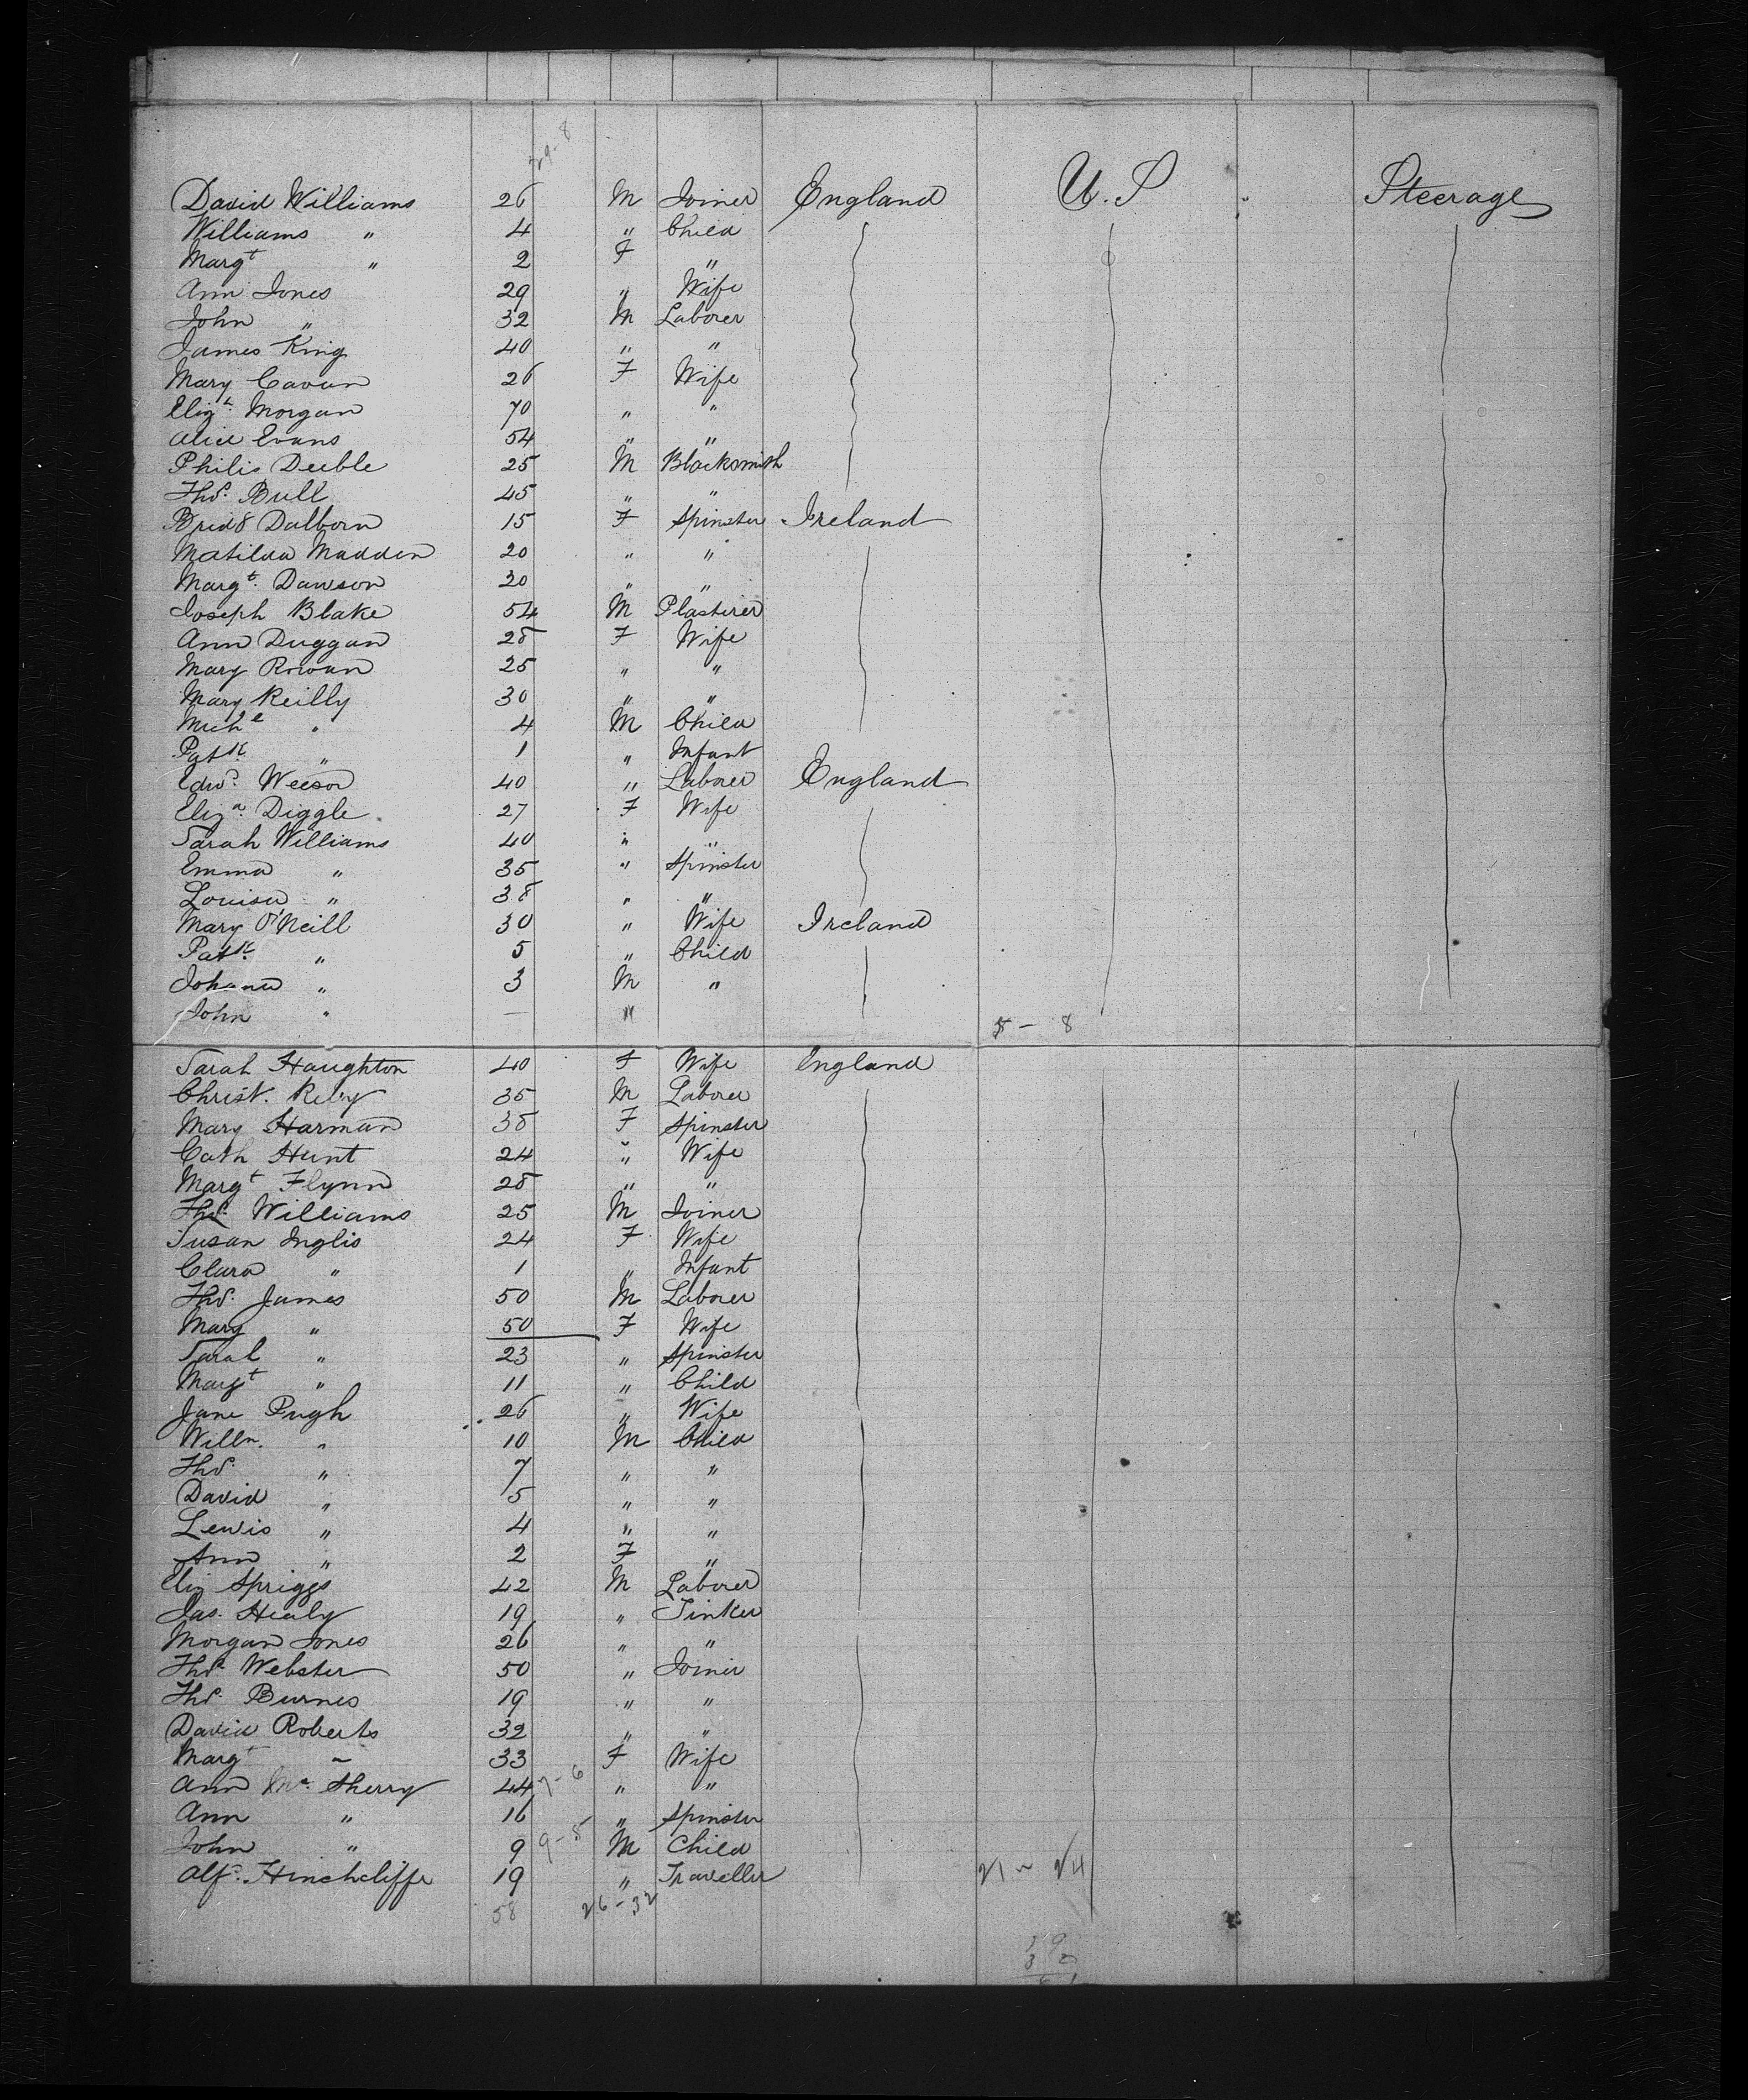 29-8
David Williams 26 M Joiner England U.S Steerage
Williams " 4 " Child
Margt " 2 F "
Ann Jones 29 " Wife
John " 32 M Laborer
James King 40 " "
Mary Cavan 26 F Wife
Elizh. Morgan 70 " "
Alice Evans 54 " "
Philis Deeble 25 M Blacksmith
Thos. Bull 45 " "
Bridt Dalborn 15 F Spinster Ireland
Matilda Madden 20 " "
Margt. Dawson 20 " "
Joseph Blake 54 M Plasterer
Ann Duggan 28 F Wife
Mary Rowan 25 " "
Mary Reilly 30 " "
Michl " 4 M Child
Patk. " 1 " Infant
Edwd. Weesor 40 " Laborer England
Eliza. Diggle 27 F Wife
Sarah Williams 40 " "
Emma " 35 " Spinster
Louisa " 38 " "
Mary O'Neill 30 " Wife Ireland
Patk. " 5 " Child
Johana " 3 M "
John " — "
5 - 8
Sarah Haughton 40 F Wife England
Christ. Reby 35 M Laborer
Mary Harman 38 F Spinster
Cath Hunt 24 " Wife
Margt Flynn 28 " "
Thos. Williams 25 M Joiner
Susan Inglis 24 F Wife
Clara " 1 " Infant
Thos. James 50 M Laborer
Mary " 50 F Wife
Sarah " 23 " Spinster
Margt " 11 " Child
Jane Pugh 26 " Wife
Willm. " 10 M Child
Thos. " 7 " "
David " 5 " "
Lewis " 4 " "
Ann " 2 F "
Eliz Spriggs 42 M Laborer
Jas. Healy 19 " Tinker
Morgan Jones 26 " "
Thos. Webster 50 " Joiner
Thos. Burnes 19 " "
David Roberts 32 " "
Margt " 33 F Wife
Ann Mc. Sherry 44 7-6 " "
Ann " 16 " Spinster
John " 9 9-5 M Child
Alfd. Hinchcliffe 19 " Traveller 21 - 24
58 26-32